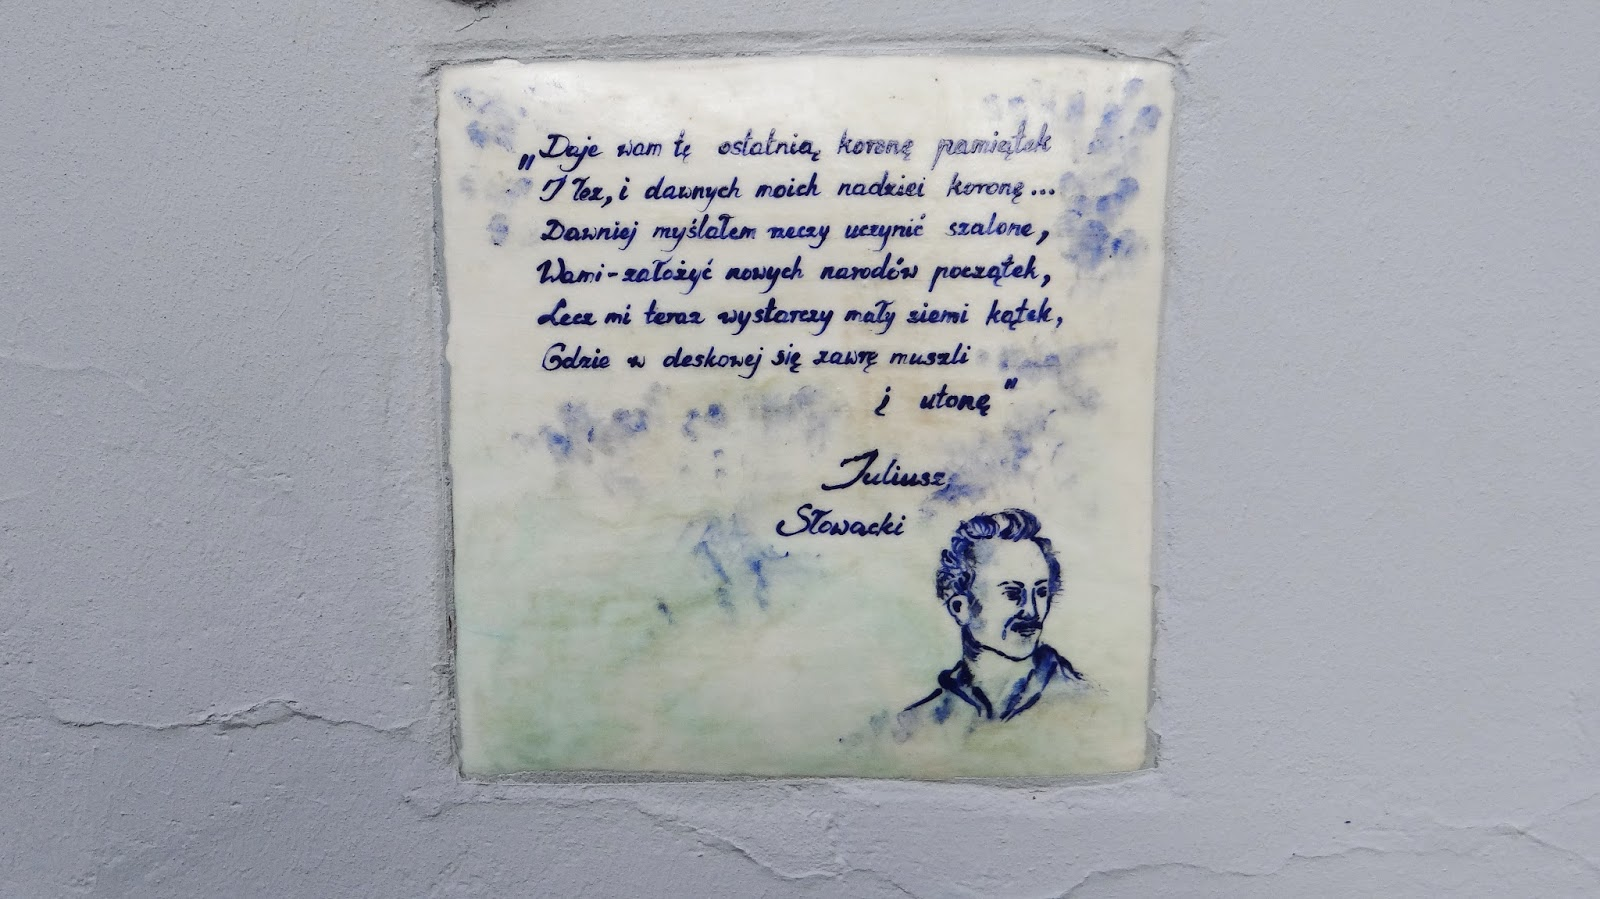 „Daję wam tę ostatnią koronę pamiątek
I łez, i dawnych moich nadziei koronę...
Dawniej myślałem rzeczy uczynić szalone,
Wami-założyć nowych narodów początek,
Lecz mi teraz wystarczy mały ziemi kątek,
Gdzie w deskowej się zawrę muszli
i utonę"
Juliusz
Słowacki